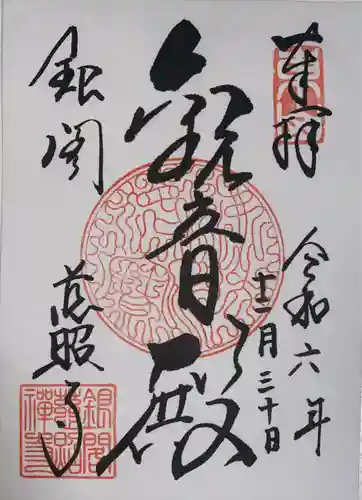 奉拝
令和六年
十二月三十日
観音殿
銀閣
慈照寺
銀閣
慈照
禅寺